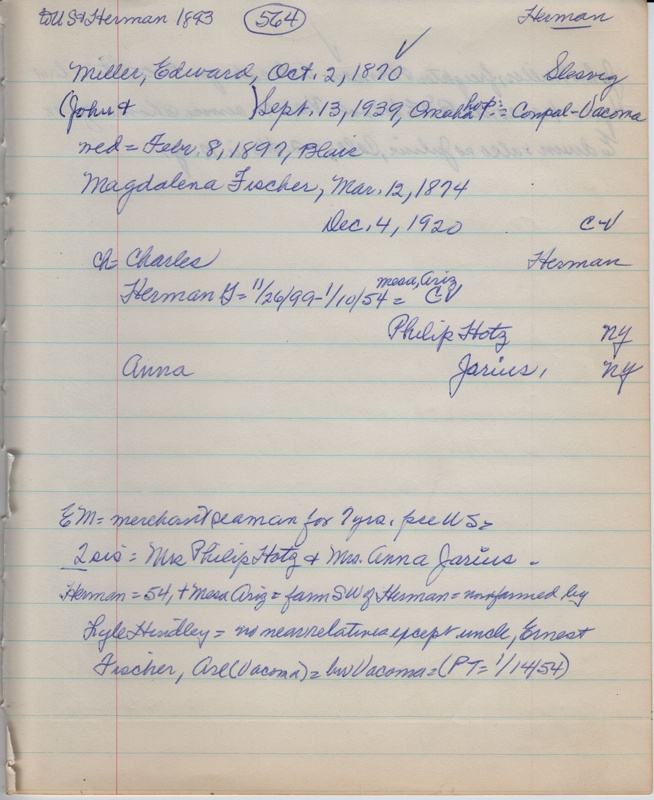 to US & Herman 1893 564 Herman
Miller, Edward, Oct. 2, 1870 Slesvig
(John & )Sept. 13, 1939, Omaha hosp. = Conpal-Vacoma
med = Febr. 8, 1897, Blair
Magdalena Fischer, Mar. 12, 1874
Dec. 4, 1920 CV
Ch= Charles Herman
Herman G= 11/26/99-1/10/54 = Mesa, Ariz CV
Philip Hotz NY
Anna Jarius, NY
EM= merchant seaman for 7 yrs. pre US=
2 sis = Mrs Philip Hotz & Mrs. Anna Jarius -
Herman = 54, + Mesa Ariz = farm SW of Herman = now farmed by
Lyle Hindley = no near relatives except uncle, Ernest
Fischer, Arl (Vacoma) = bur Vacoma = (PT= 1/14/54)